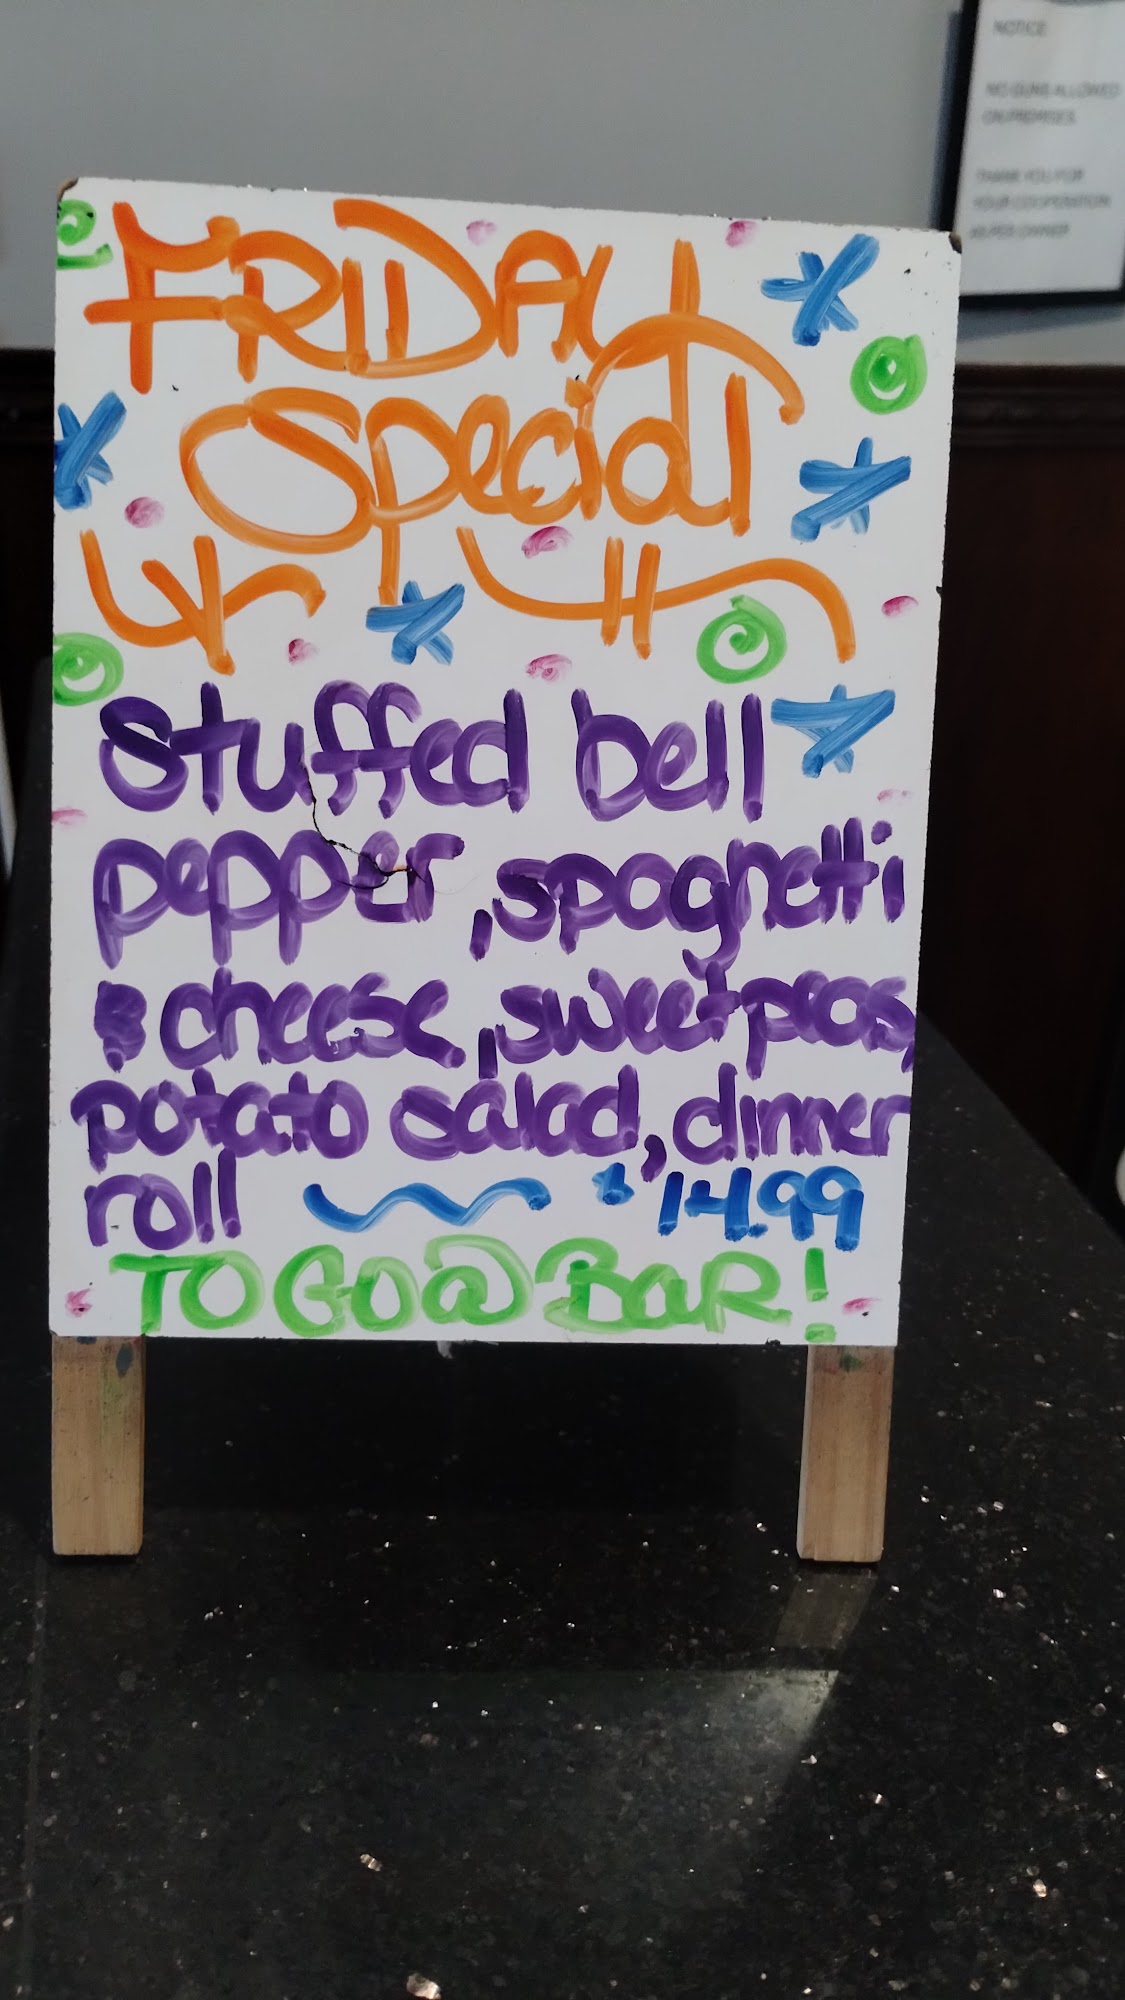 FRIDAY
Special
stuffed bell
pepper, spaghetti
& cheese, sweet peas,
potato salad, dinner
roll $14.99
TO GO @ BAR!
NOTICE
NO GUNS ALLOWED
ON PREMISES
THANK YOU FOR
YOUR COOPERATION
AS PER OWNER